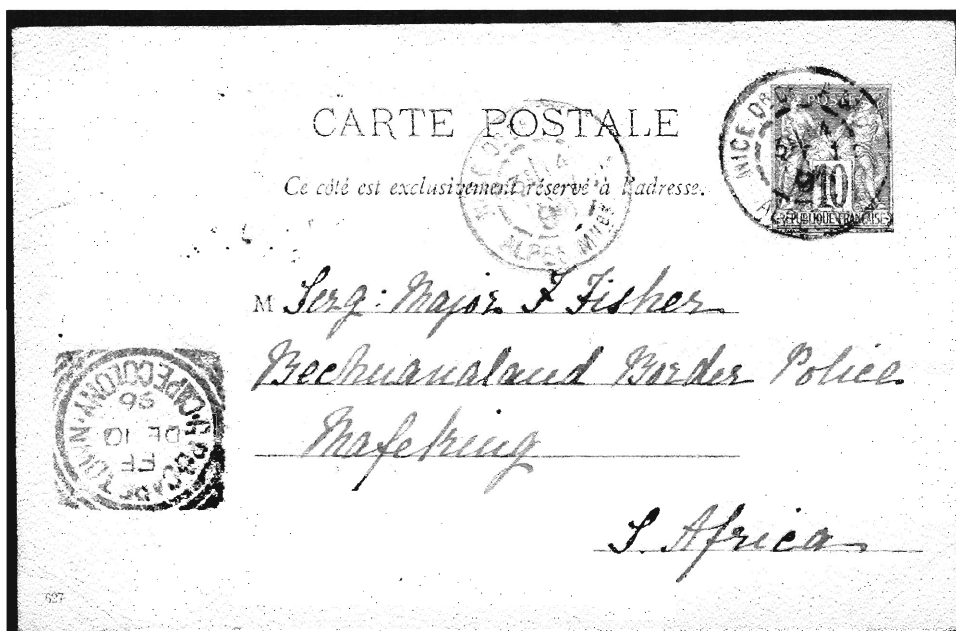 CARTE POSTALE
Ce côté est exclusivement réservé à l'adresse.
POSTE
10
RÉPUBLIQUE FRANÇAISE
NICE
NICE
ALPES Mmes
M Serg: Major F Fisher
Bechuanaland Border Police
Mafeking
S. Africa
G.P.O. CAPE TOWN · CAPE COLONY
EF
DE 10
96
627